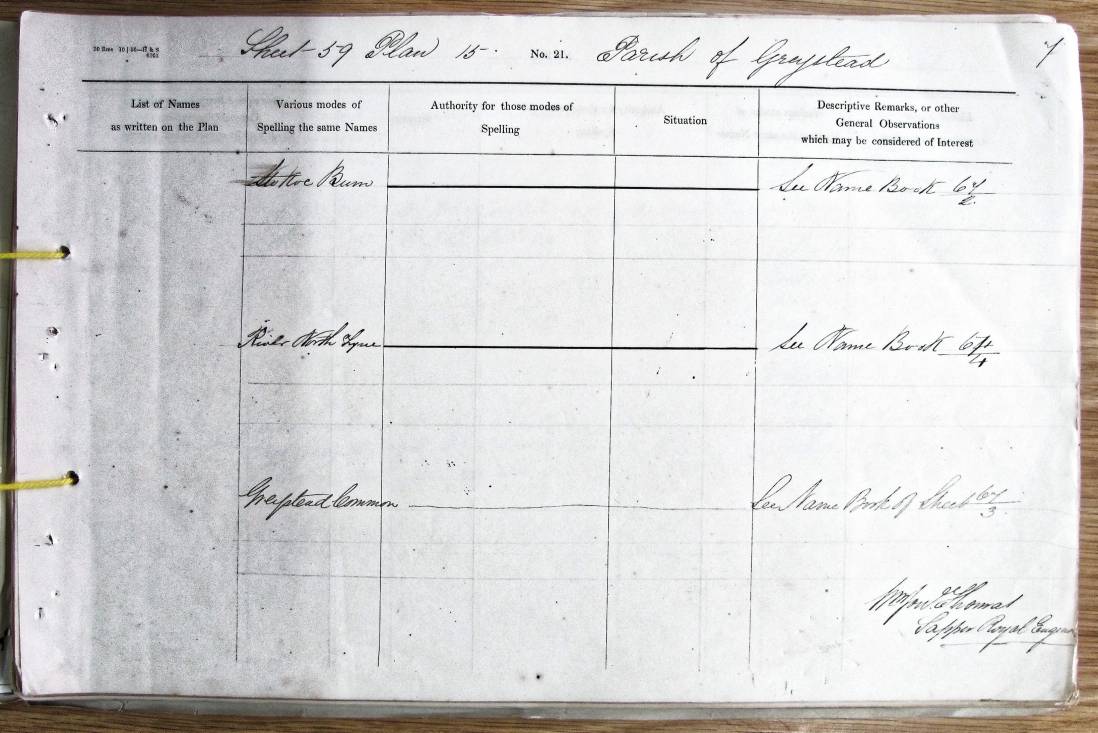 Sheet 59 Plan 15. No. 21. Parish of Greystead 7
List of Names
as written on the Plan
Various modes of
Spelling the same Names
Authority for those modes of
Spelling
Situation
Descriptive Remarks, or other
General Observations
which may be considered of Interest
Burn See Name Book 67/2
River North Tyne See Name Book 67/4
Greystead Common See Name Book of Sheet 67/3
Thomas
Sapper Royal Engineers